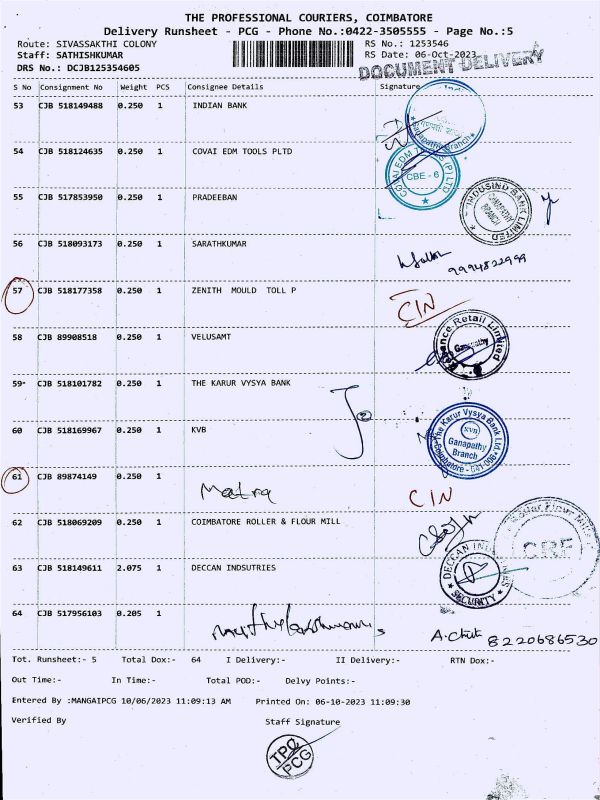 THE PROFESSIONAL COURIERS, COIMBATORE
Delivery Runsheet - PCG - Phone No.:0422-3505555 - Page No.:5
Route: SIVASSAKTHI COLONY RS No.: 1253546
Staff: SATHISHKUMAR RS Date: 06-Oct-2023
DRS No.: DCJB125354605 DOCUMENT DELIVERY
S No Consignment No Weight PCS Consignee Details Signature
53 CJB 518149488 0.250 1 INDIAN BANK
Ganapathy Branch
54 CJB 518124635 0.250 1 COVAI EDM TOOLS PLTD
COVAI EDM (P) LTD
CBE - 6
55 CJB 517853950 0.250 1 PRADEEBAN
INDUSIND BANK LIMITED
GANAPATHY BRANCH
56 CJB 518093173 0.250 1 SARATHKUMAR
9994822999
57 CJB 518177358 0.250 1 ZENITH MOULD TOLL P
CIN
58 CJB 89908518 0.250 1 VELUSAMT
Retail Limited
Ganapathy
59 CJB 518101782 0.250 1 THE KARUR VYSYA BANK
60 CJB 518169967 0.250 1 KVB
The Karur Vysya Bank Ltd.
KVB
Ganapathy
Branch
Coimbatore - 641-006
61 CJB 89874149 0.250 1 Matra CIN
62 CJB 518069209 0.250 1 COIMBATORE ROLLER & FLOUR MILL
Flour Mills
CRF
63 CJB 518149611 2.075 1 DECCAN INDSUTRIES
DECCAN
SECURITY
64 CJB 517956103 0.205 1
8220686530
Tot. Runsheet:- 5 Total Dox:- 64 I Delivery:- II Delivery:- RTN Dox:-
Out Time:- In Time:- Total POD:- Delvy Points:-
Entered By :MANGAIPCG 10/06/2023 11:09:13 AM Printed On: 06-10-2023 11:09:30
Verified By Staff Signature
TPC
PCG